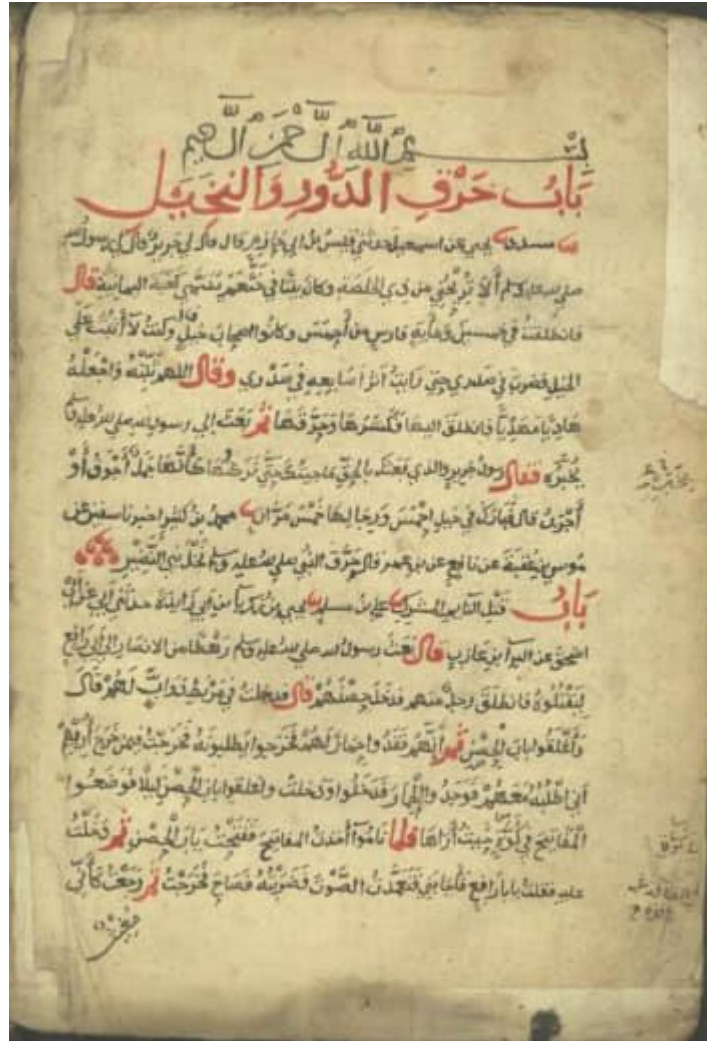 بسم الله الرحمن الرحيم
باب حرق الدور والنخيل
مسدد يحيى عن اسمعيل حدثني قيس بن ابي حازم قال قال لي جرير قال لي رسول الله
صلى الله عليه وسلم ألا تريحني من ذي الخلصة وكان بيتا في خثعم يسمى كعبة اليمانية قال
فانطلقت في خمسين ومائة فارس من أحمس وكانوا اصحاب خيل قال وكنت لا أثبت على
الخيل فضرب في صدري حتى رايت اثر اصابعه في صدري وقال اللهم ثبته واجعله
هاديا مهديا فانطلق اليها فكسرها وحرقها ثم بعث إلى رسول الله صلى الله عليه وسلم
يخبره فقال رسول جرير والذي بعثك بالحق ما جئتك حتى تركتها كأنها جمل أجوف أو
أجرب قال فبارك في خيل احمس ورجالها خمس مرات محمد بن كثير اخبرنا سفين عن
موسى بن عقبة عن نافع عن بن عمر قال حرق النبي صلى الله عليه وسلم نخل بني النضير
باب قتل النايم المشرك علي بن مسلم يحيى بن زكريا بن ابي زايدة حدثني ابي عن ابي
اسحق عن البرا بن عازب قال بعث رسول الله صلى الله عليه وسلم رهطا من الانصار الى ابي رافع
ليقتلوه فانطلق رجل منهم فدخل حصنهم قال فدخلت في مربط دواب لهم قال
وأغلقوا باب الحصن ثم أنهم فقدوا حمارا لهم فخرجوا يطلبونه فخرجت فيمن خرج أريهم
أني اطلبه معهم فوجدوا الحمار فدخلوا ودخلت واغلقوا باب الحصن ليلا فوضعوا
المفاتيح في كوة حيث أراها فلما ناموا أخذت المفاتيح ففتحت باب الحصن ثم دخلت
عليه فقلت يابا رافع فأجابني فتعمدت الصوت فضربته فصاح فخرجت ثم رجعت كأني
مغيث